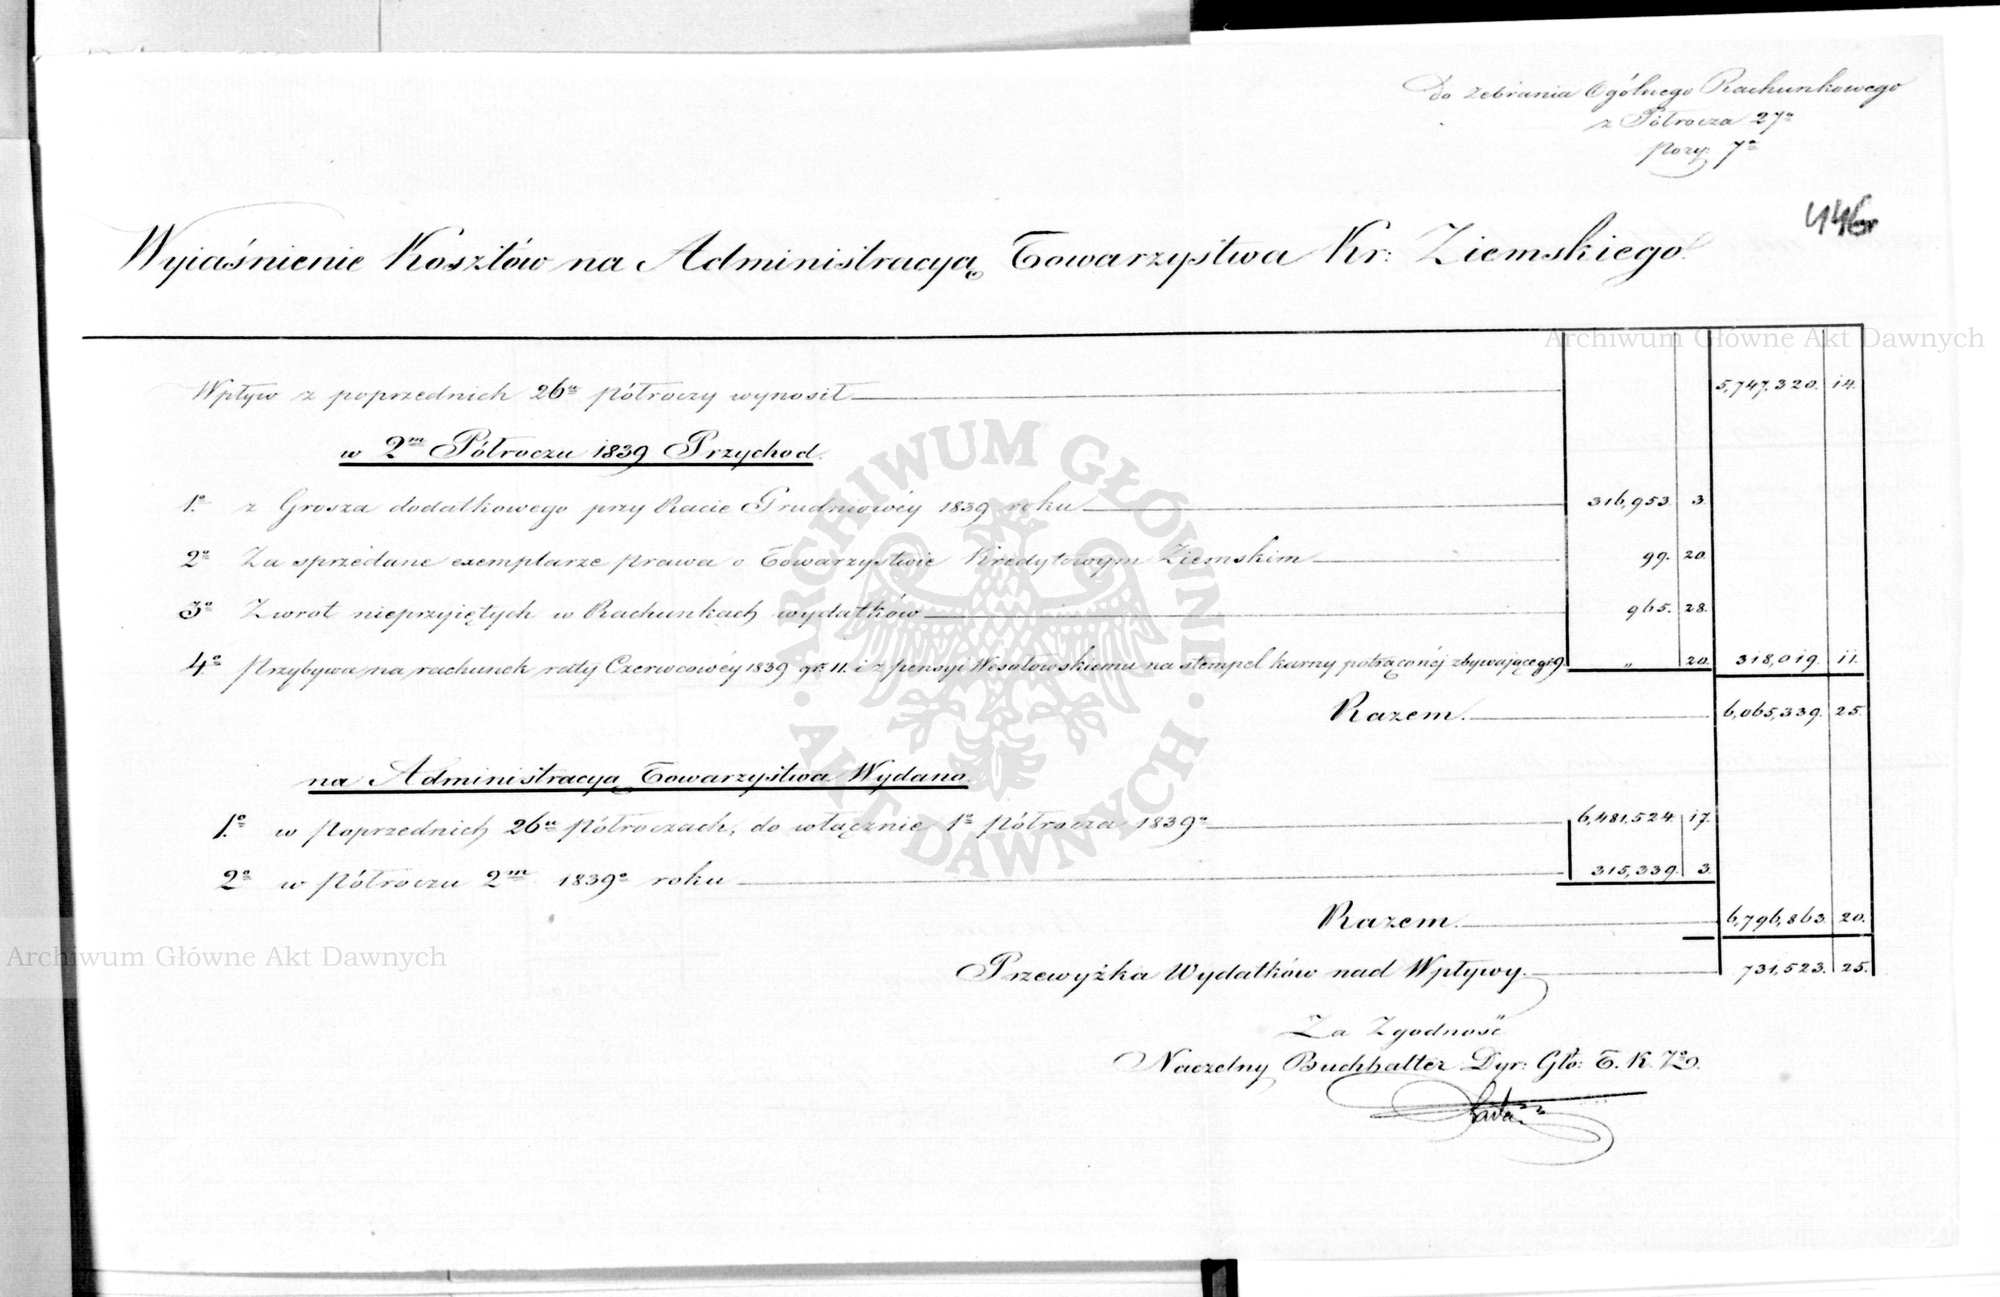 Do zebrania Ogólnego Rachunkowego
z Półrocza 27º
pozy: 7ª
446
Wyiaśnienie Kosztów na Administracyą Towarzystwa Kr: Ziemskiego.
Archiwum Główne Akt Dawnych
Wpływ z poprzednich 26u półroczy wynosił 5,747,320. 14.
w 2m Półroczu 1839 Przychod.
1º z Grosza dodatkowego przy Racie Grudniowéy 1839 roku 316,953. 3.
2º Za sprzedane exemplarze prawa o Towarzystwie Kredytowym Ziemskim 99. 20.
3º Zwrot nieprzyiętych w Rachunkach wydatków 965. 28.
4º Przybywa na rachunek raty Czerwcowéy 1839 gr. 11. i z pensyi Wesołowskiemu na stempel karny potrąconéj zbywające gr 9. " 20. 318,019. 11.
Razem. 6,065,339. 25.
na Administracyą Towarzystwa Wydano.
1º w poprzednich 26u półroczach, do włącznie 1º półrocza 1839º 6,481,524. 17.
2º w półroczu 2m 1839º roku 315,339. 3.
Razem. 6,796,863. 20.
Przewyżka Wydatków nad Wpływy. 731,523. 25.
Za Zgodność
Naczelny Buchhalter Dyr: Głó: T. K. Zº.
ARCHIWUM GŁÓWNE AKT DAWNYCH
Archiwum Główne Akt Dawnych